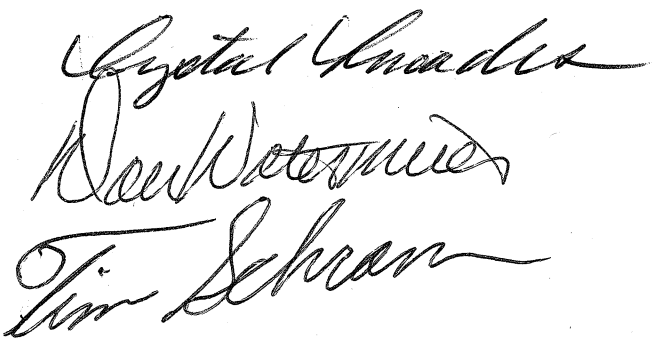 Crystal Rhoades
Dan Watermeier
Tim Schram